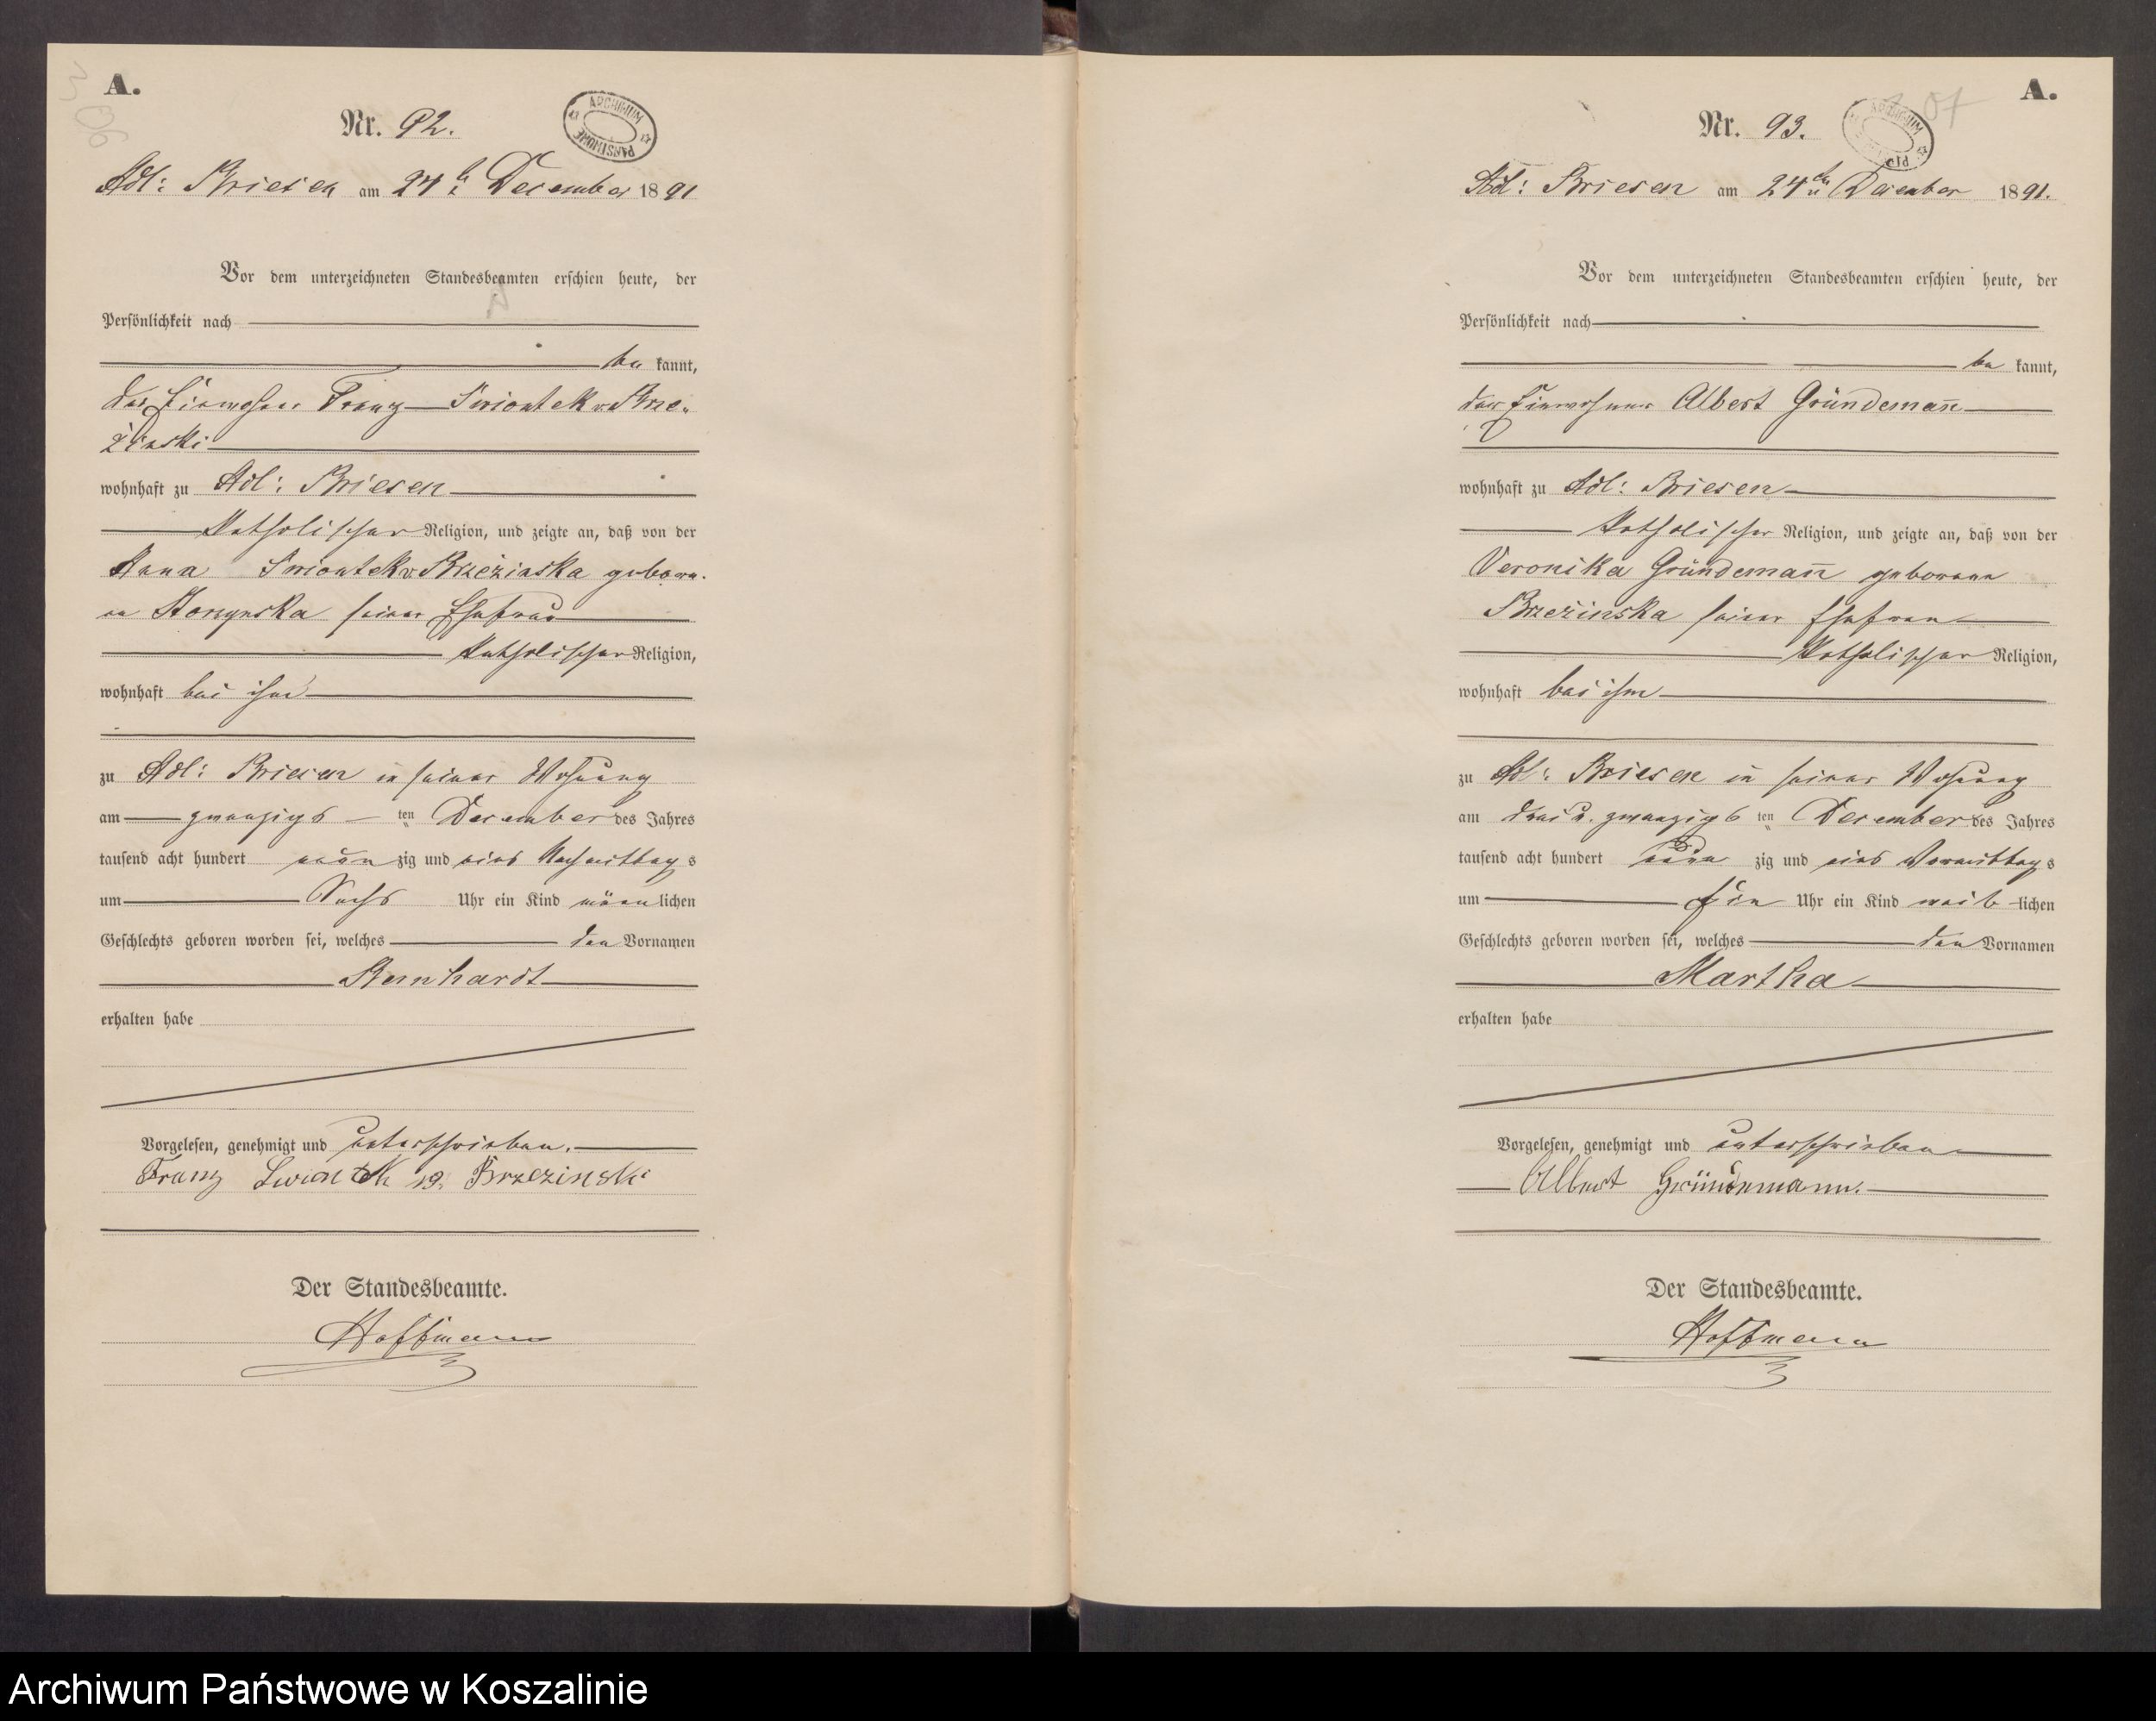 A.
Nr. 92.
ARCHIWUM PAŃSTWOWE
Adl: Briesen am 24t. December 1891
Vor dem unterzeichneten Standesbeamten erschien heute, der
Persönlichkeit nach
be kannt,
der Einwohner Franz Swiontek v. Brze-
zinski
wohnhaft zu Adl: Briesen
katholischer Religion, und zeigte an, daß von der
Anna Swiontek v. Brzezinska gebore-
ne seiner Ehefrau
katholischer Religion,
wohnhaft bei ihm
zu Adl: Briesen in seiner Wohnung
am zwanzigs ten December des Jahres
tausend acht hundert neun zig und eins Nachmittag s
um Sechs Uhr ein Kind männ lichen
Geschlechts geboren worden sei, welches den Vornamen
Bernhardt
erhalten habe
Vorgelesen, genehmigt und unterschrieben.
Franz Swiontek v. Brzezinski
Der Standesbeamte.
Hoffmann
A.
307
Nr. 93.
Adl: Briesen am 24ten December 1891.
Vor dem unterzeichneten Standesbeamten erschien heute, der
Persönlichkeit nach
be kannt,
der Einwohner Albert Gründemann̄
wohnhaft zu Adl: Briesen
katholischer Religion, und zeigte an, daß von der
Veronika Gründemann̄ geborene
Brzezinska seiner Ehefrau
katholischer Religion,
wohnhaft bei ihm
zu Adl: Briesen in seiner Wohnung
am drei u. zwanzigs ten December des Jahres
tausend acht hundert neun zig und eins Vormittag s
um Ein Uhr ein Kind weib lichen
Geschlechts geboren worden sei, welches den Vornamen
Martha
erhalten habe
Vorgelesen, genehmigt und unterschrieben
Albert Gründemann.
Der Standesbeamte.
Hoffmann
Archiwum Państwowe w Koszalinie